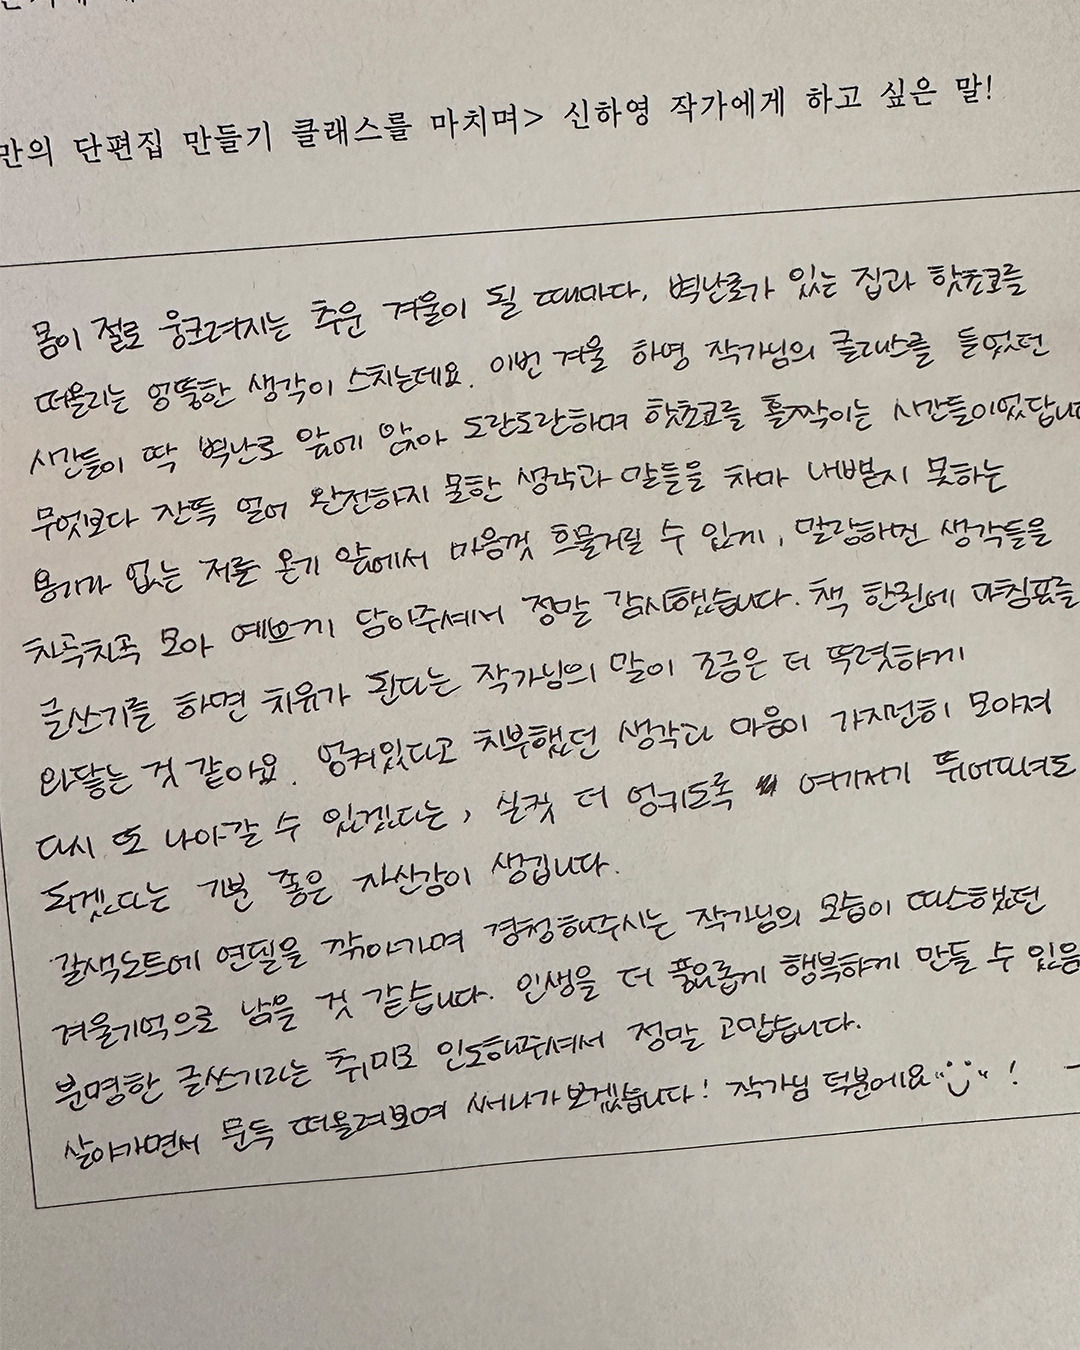 만의 단편집 만들기 클래스를 마치며> 신하영 작가에게 하고 싶은 말!
몸이 절로 웅크려지는 추운 겨울이 될 때마다, 벽난로가 있는 집과 핫초코를
떠올리는 엉뚱한 생각이 스치는데요. 이번 겨울 하영 작가님의 클래스를 들었던
시간들이 딱 벽난로 앞에 앉아 도란도란하며 핫초코를 홀짝이는 시간들이었답니다
무엇보다 잔뜩 얼어 완전하지 못한 생각과 말들을 차마 내뱉지 못하는
용기가 없는 저를 온기 앞에서 마음껏 흐물거릴 수 있게, 말랑하던 생각들을
차곡차곡 모아 예쁘게 담아주셔서 정말 감사했습니다. 책 한권에 마침표를
글쓰기를 하면 치유가 된다는 작가님의 말이 조금은 더 뚜렷하게
와닿는 것 같아요. 엉켜있다고 치부했던 생각과 마음이 가지런히 모아져
다시 또 나아갈 수 있겠다는, 실컷 더 엉키도록 여기저기 뛰어다녀도
되겠다는 기분 좋은 자신감이 생깁니다.
갈색노트에 연필을 깎아가며 경청해주시는 작가님의 모습이 따스했던
겨울기억으로 남을 것 같습니다. 인생을 더 풍요롭게 행복하게 만들 수 있음
분명한 글쓰기라는 취미로 인도해주셔서 정말 고맙습니다.
살아가면서 문득 떠올려보며 써나가보겠습니다! 작가님 덕분에요 !